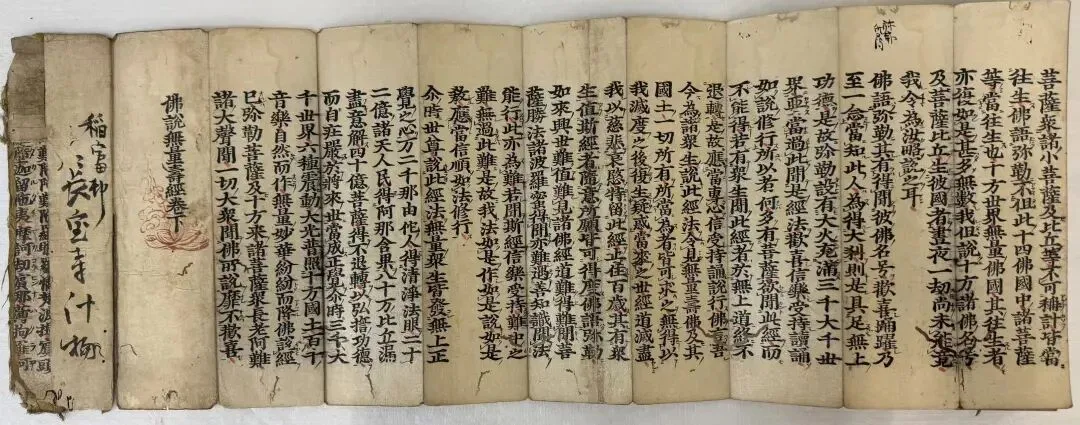 菩薩衆諸小菩薩及比丘等不可稱計皆當
往生佛語弥勒不但此十四佛國中諸菩薩
等當往生也十方世界無量佛國其往生者
亦復如是甚多無數我但說十方諸佛名号
及菩薩比丘生彼國者晝夜一劫尚未能竟
我今為汝略說之耳
佛語弥勒其有得聞彼佛名号歡喜踊躍乃
至一念當知此人為得大利則是具足無上
功德是故弥勒設有大火充滿三千大千世
界要當過此聞是經法歡喜信樂受持讀誦
如說修行所以者何多有菩薩欲聞此經而
不能得若有衆生聞此經者於無上道終不
退轉是故應當專心信受持誦說行佛言吾
今為諸衆生說此經法令見無量壽佛及其
國土一切所有所當為者皆可求之無得以
我滅度之後復生疑惑當來之世經道滅盡
我以慈悲哀愍特留此經止住百歲其有衆
生值斯經者隨意所願皆可得度佛語弥勒
如來興世難值難見諸佛經道難得難聞菩
薩勝法諸波羅蜜得聞亦難遇善知識聞法
能行此亦為難若聞斯經信樂受持難中之
難無過此難是故我法如是作如是說如是
教應當信順如法修行
尒時世尊說此經法無量衆生皆發無上正
覺之心万二千那由他人得清淨法眼二十
二億諸天人民得阿那含果八十万比丘漏
盡意解四十億菩薩得不退轉以弘誓功德
而自莊嚴於將來世當成正覺尒時三千大
千世界六種震動大光普照十方國土百千
音樂自然而作無量妙華紛紛而降佛說經
已弥勒菩薩及十方來諸菩薩衆長老阿難
諸大聲聞一切大衆聞佛所說靡不歡喜
佛說無量壽經卷下
稲富村
長宝寺什物